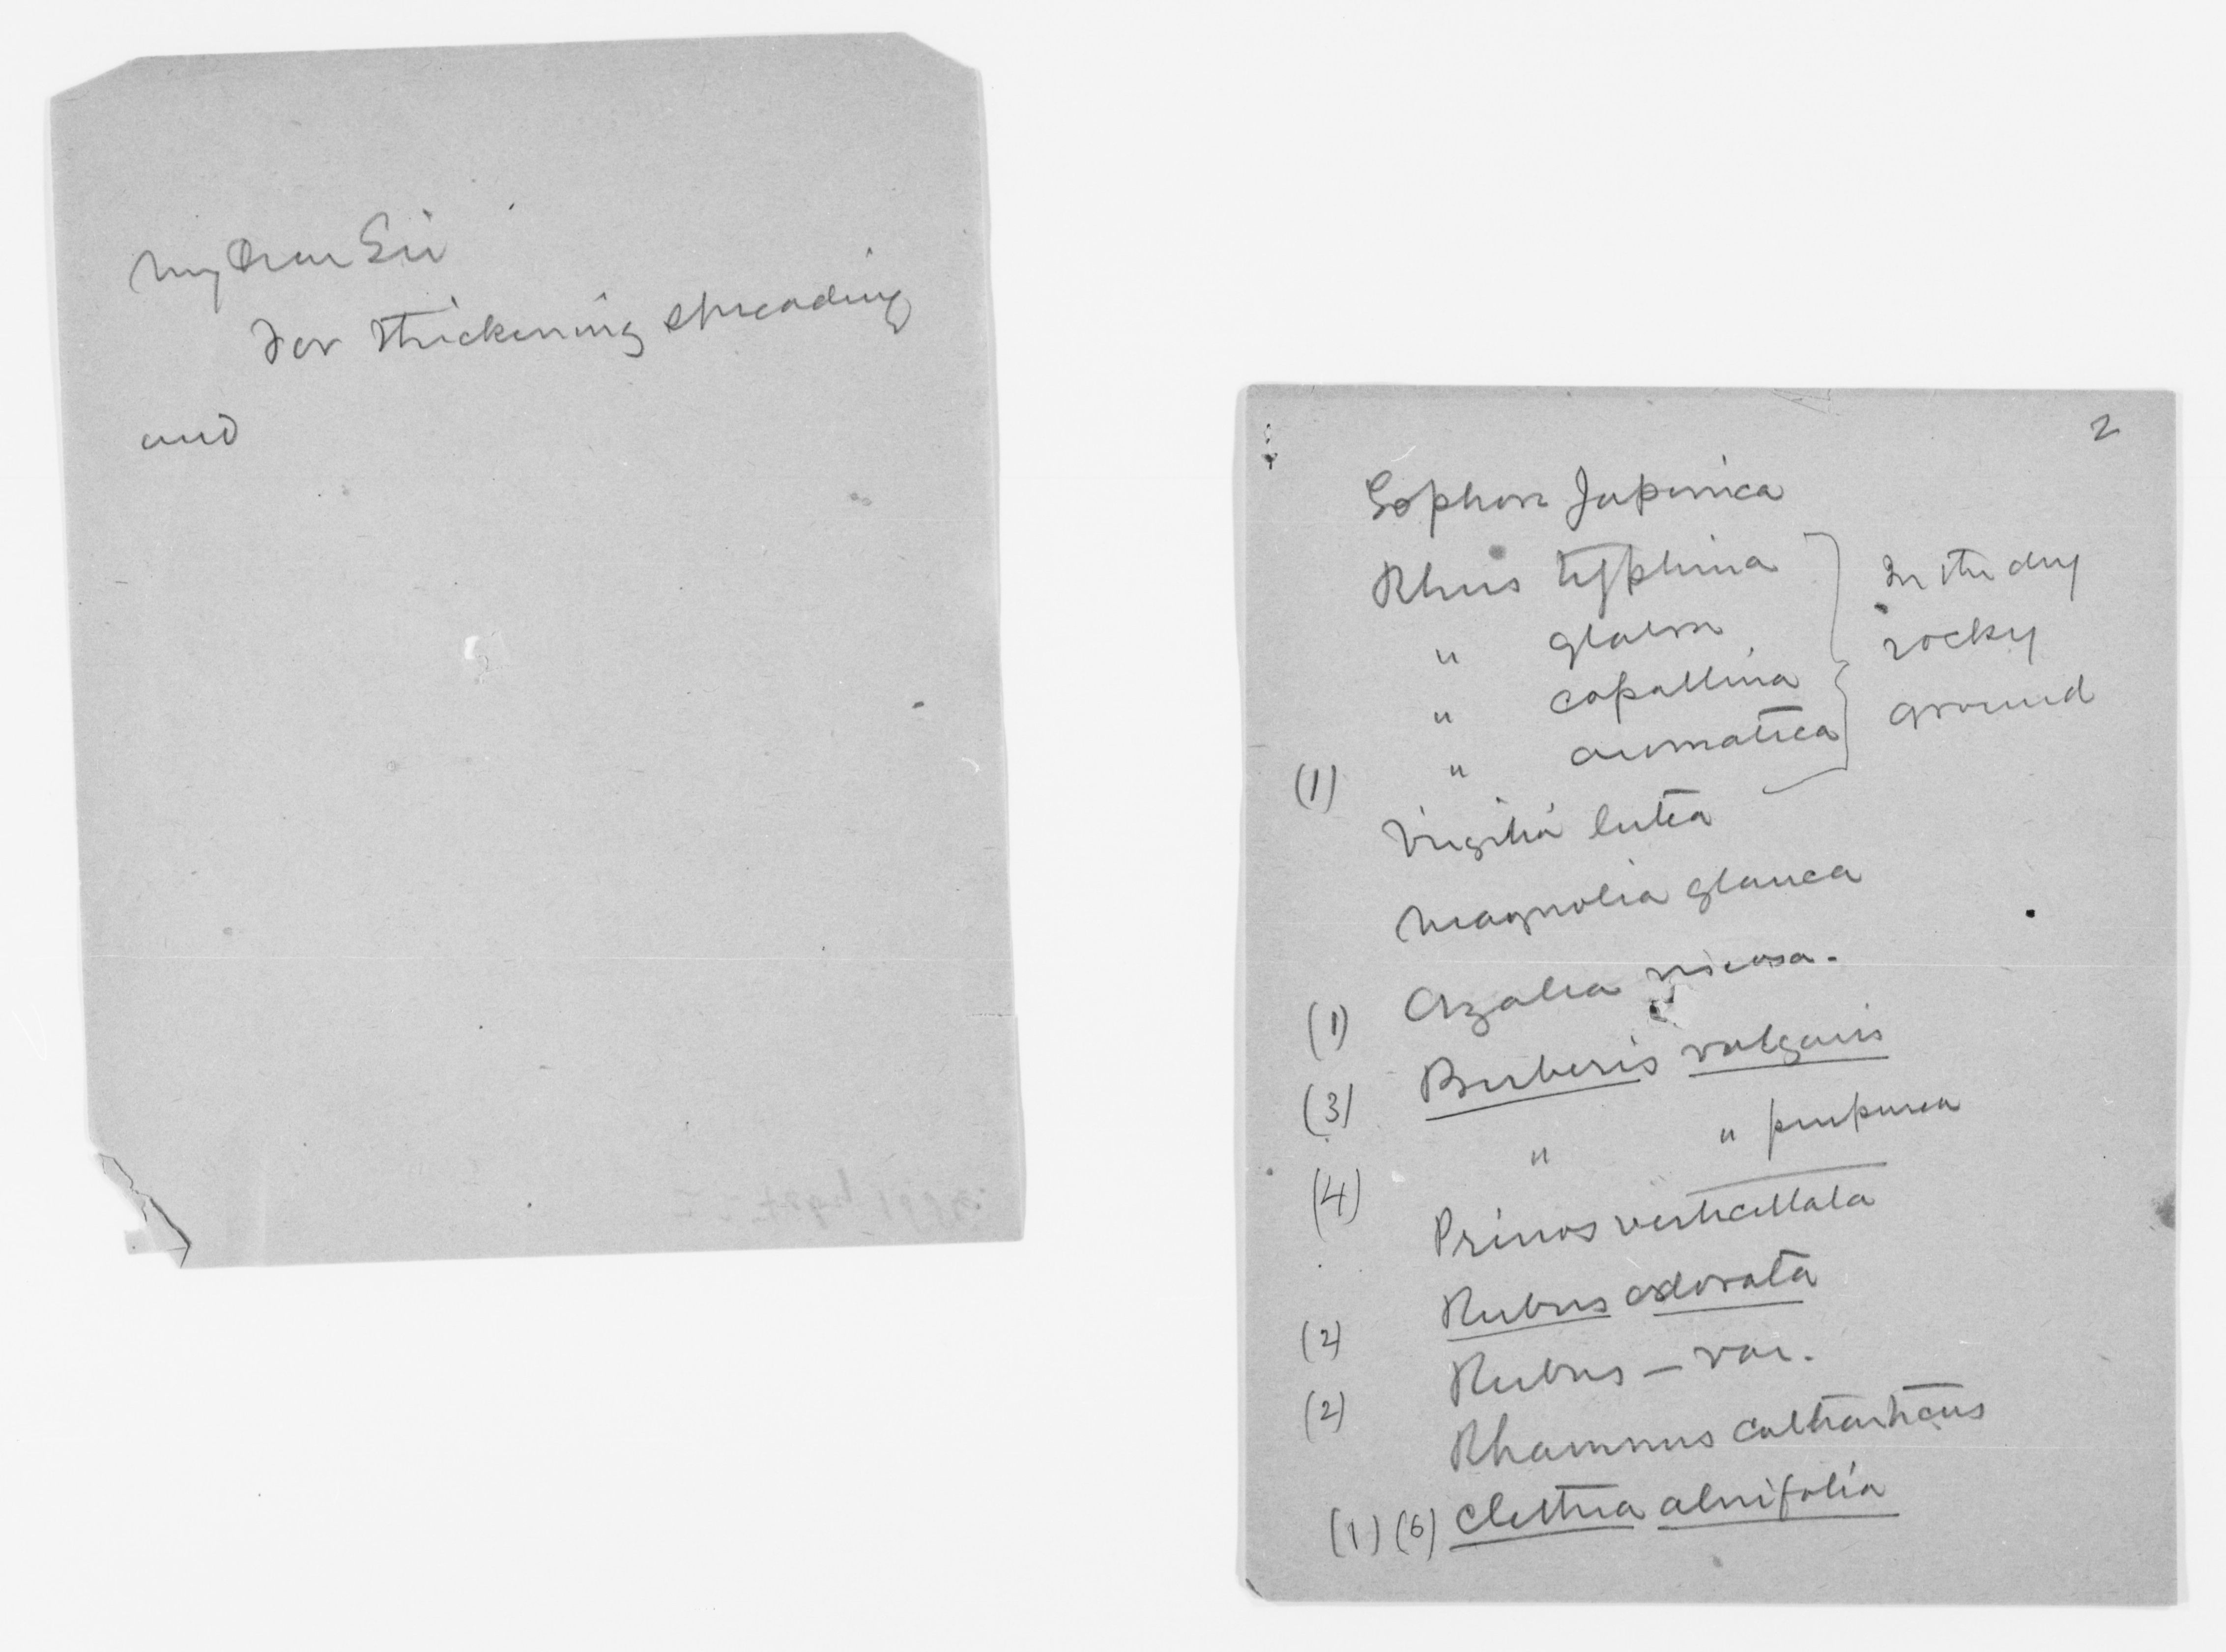 My Dear Sir
For thickening spreading
and
2
Sophora Japonica
Rhus typhina
" glabra
" copallina
(1) " aromatica
In the dry
rocky
ground
Virgilia lutea
Magnolia glauca
(1) Azalea viscosa.
(3) Berberis vulgaris
(4) " " purpurea
Prinos verticillata
(2) Rubus odorata
(2) Rubus — var.
Rhamnus cathartícus
(1) (6) Clethra alnifolia